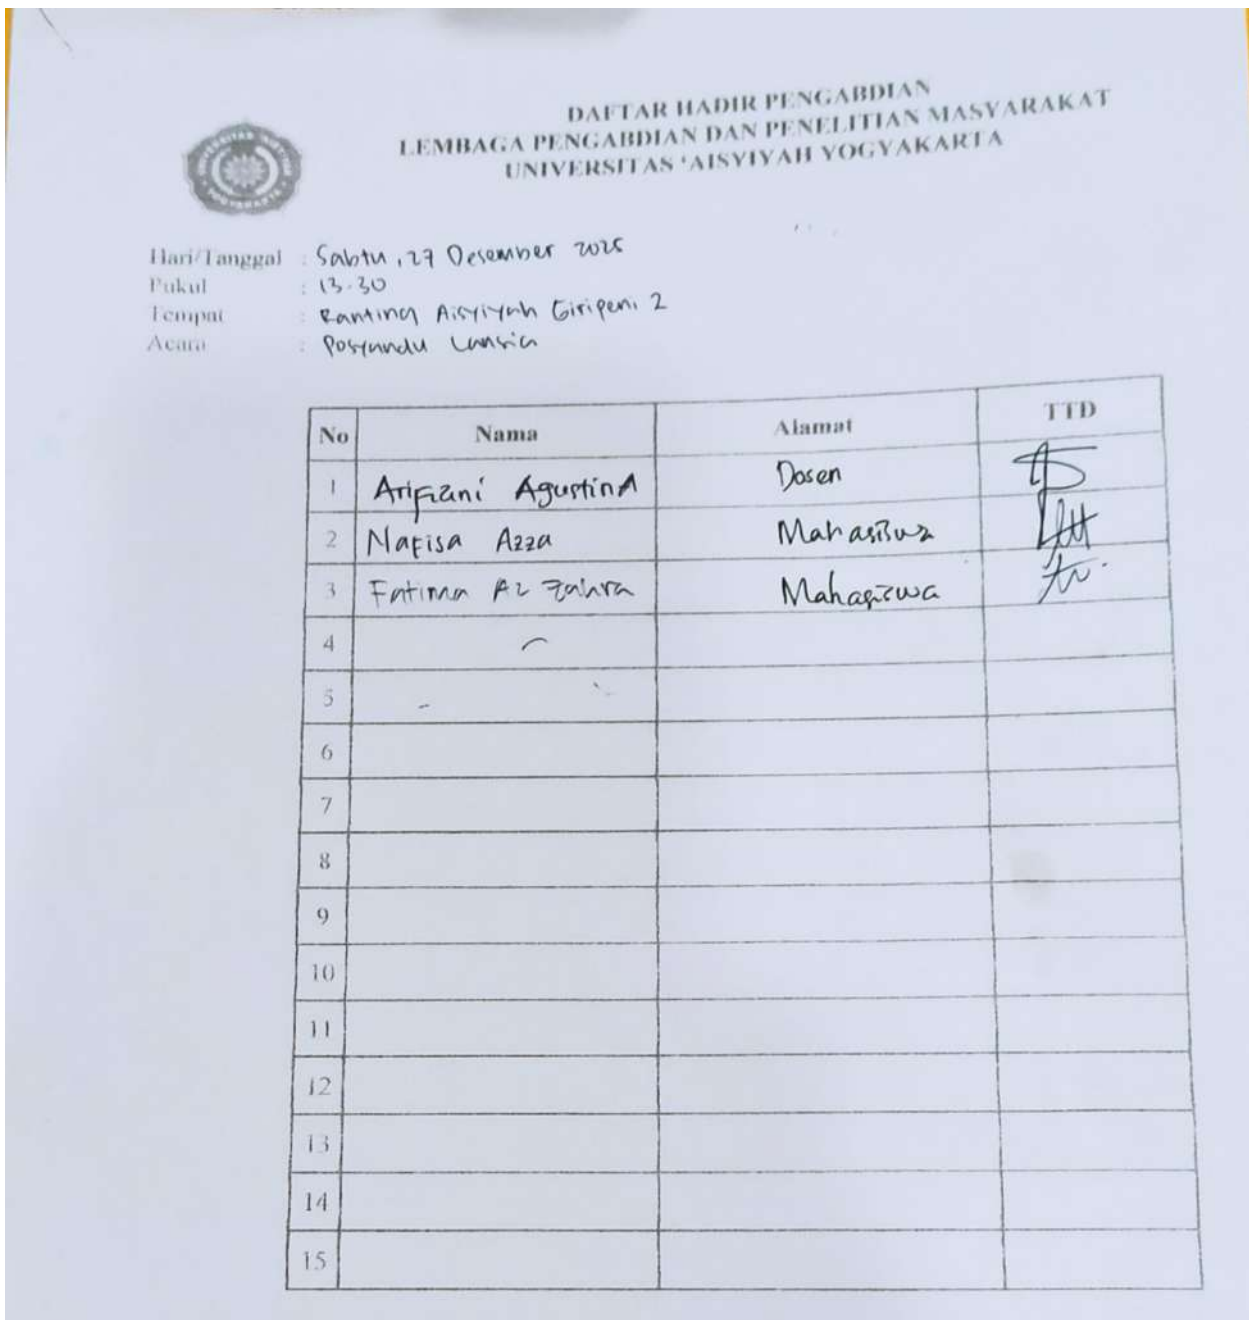 DAFTAR HADIR PENGABDIAN
LEMBAGA PENGABDIAN DAN PENELITIAN MASYARAKAT
UNIVERSITAS 'AISYIYAH YOGYAKARTA
Hari/Tanggal : Sabtu, 27 Desember 2025
Pukul : 13.30
Tempat : Ranting Aisyiyah Giripeni 2
Acara : Posyandu Lansia
No Nama Alamat TTD
1 Arifiani Agustina Dosen
2 Nafisa Azza Mahasiswa
3 Fatima Az Zahra Mahasiswa
4
5
6
7
8
9
10
11
12
13
14
15